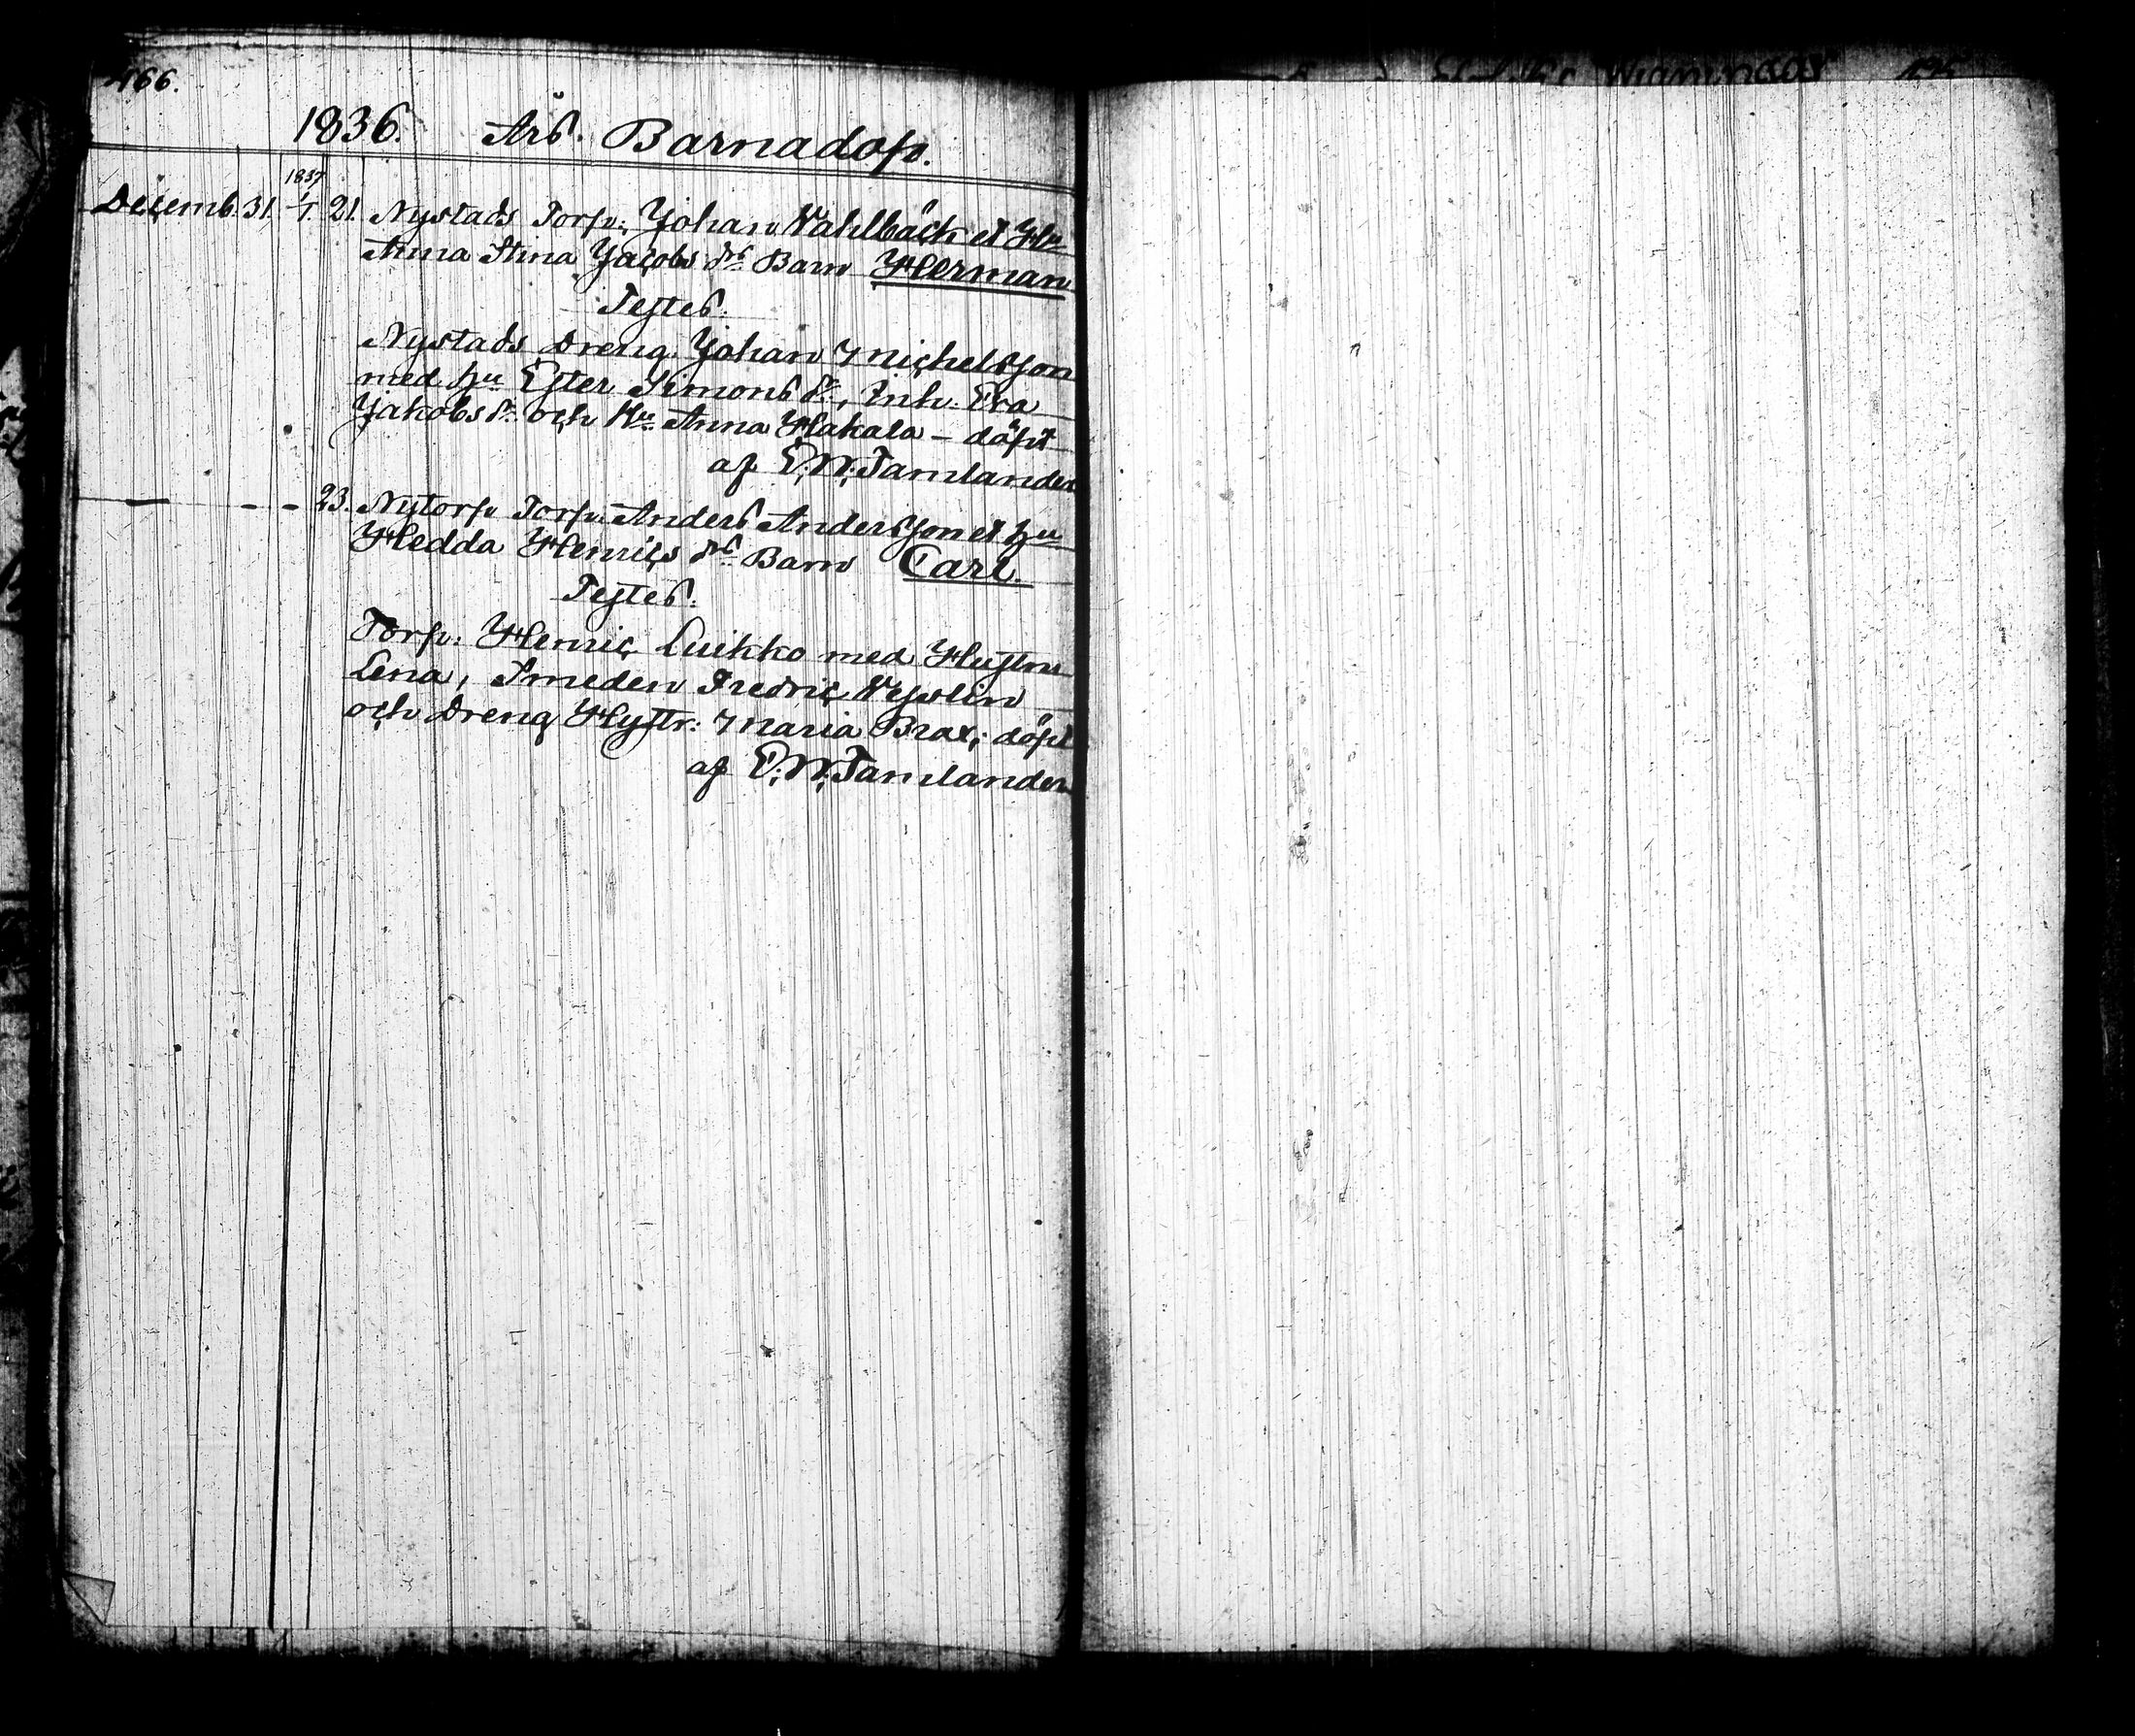 166.
1836. Års. Barnadop.
1837
Decemb. 31. 1/1. 21. Nystads Torp: Johan Wahlbäck et Hu
Anna Stina Jacobs drs Barn Herman
Testes.
Nystads Dreng Johan Michelsson
med hu Ester Simons dr, Inh. Eva
Jakobs dr och Hu Anna Hakala – döpt
af E. W. Tamlander
— - - 23. Nytorp Torp: Anders Andersson et hu
Hedda Henrics drs Barn Carl.
Testes.
Torp: Henric Luikko med Hustru
Lena, Smeden Fredric Wesslin
och Dreng Hustr: Maria Brax; döpt
af E. W. Tamlander